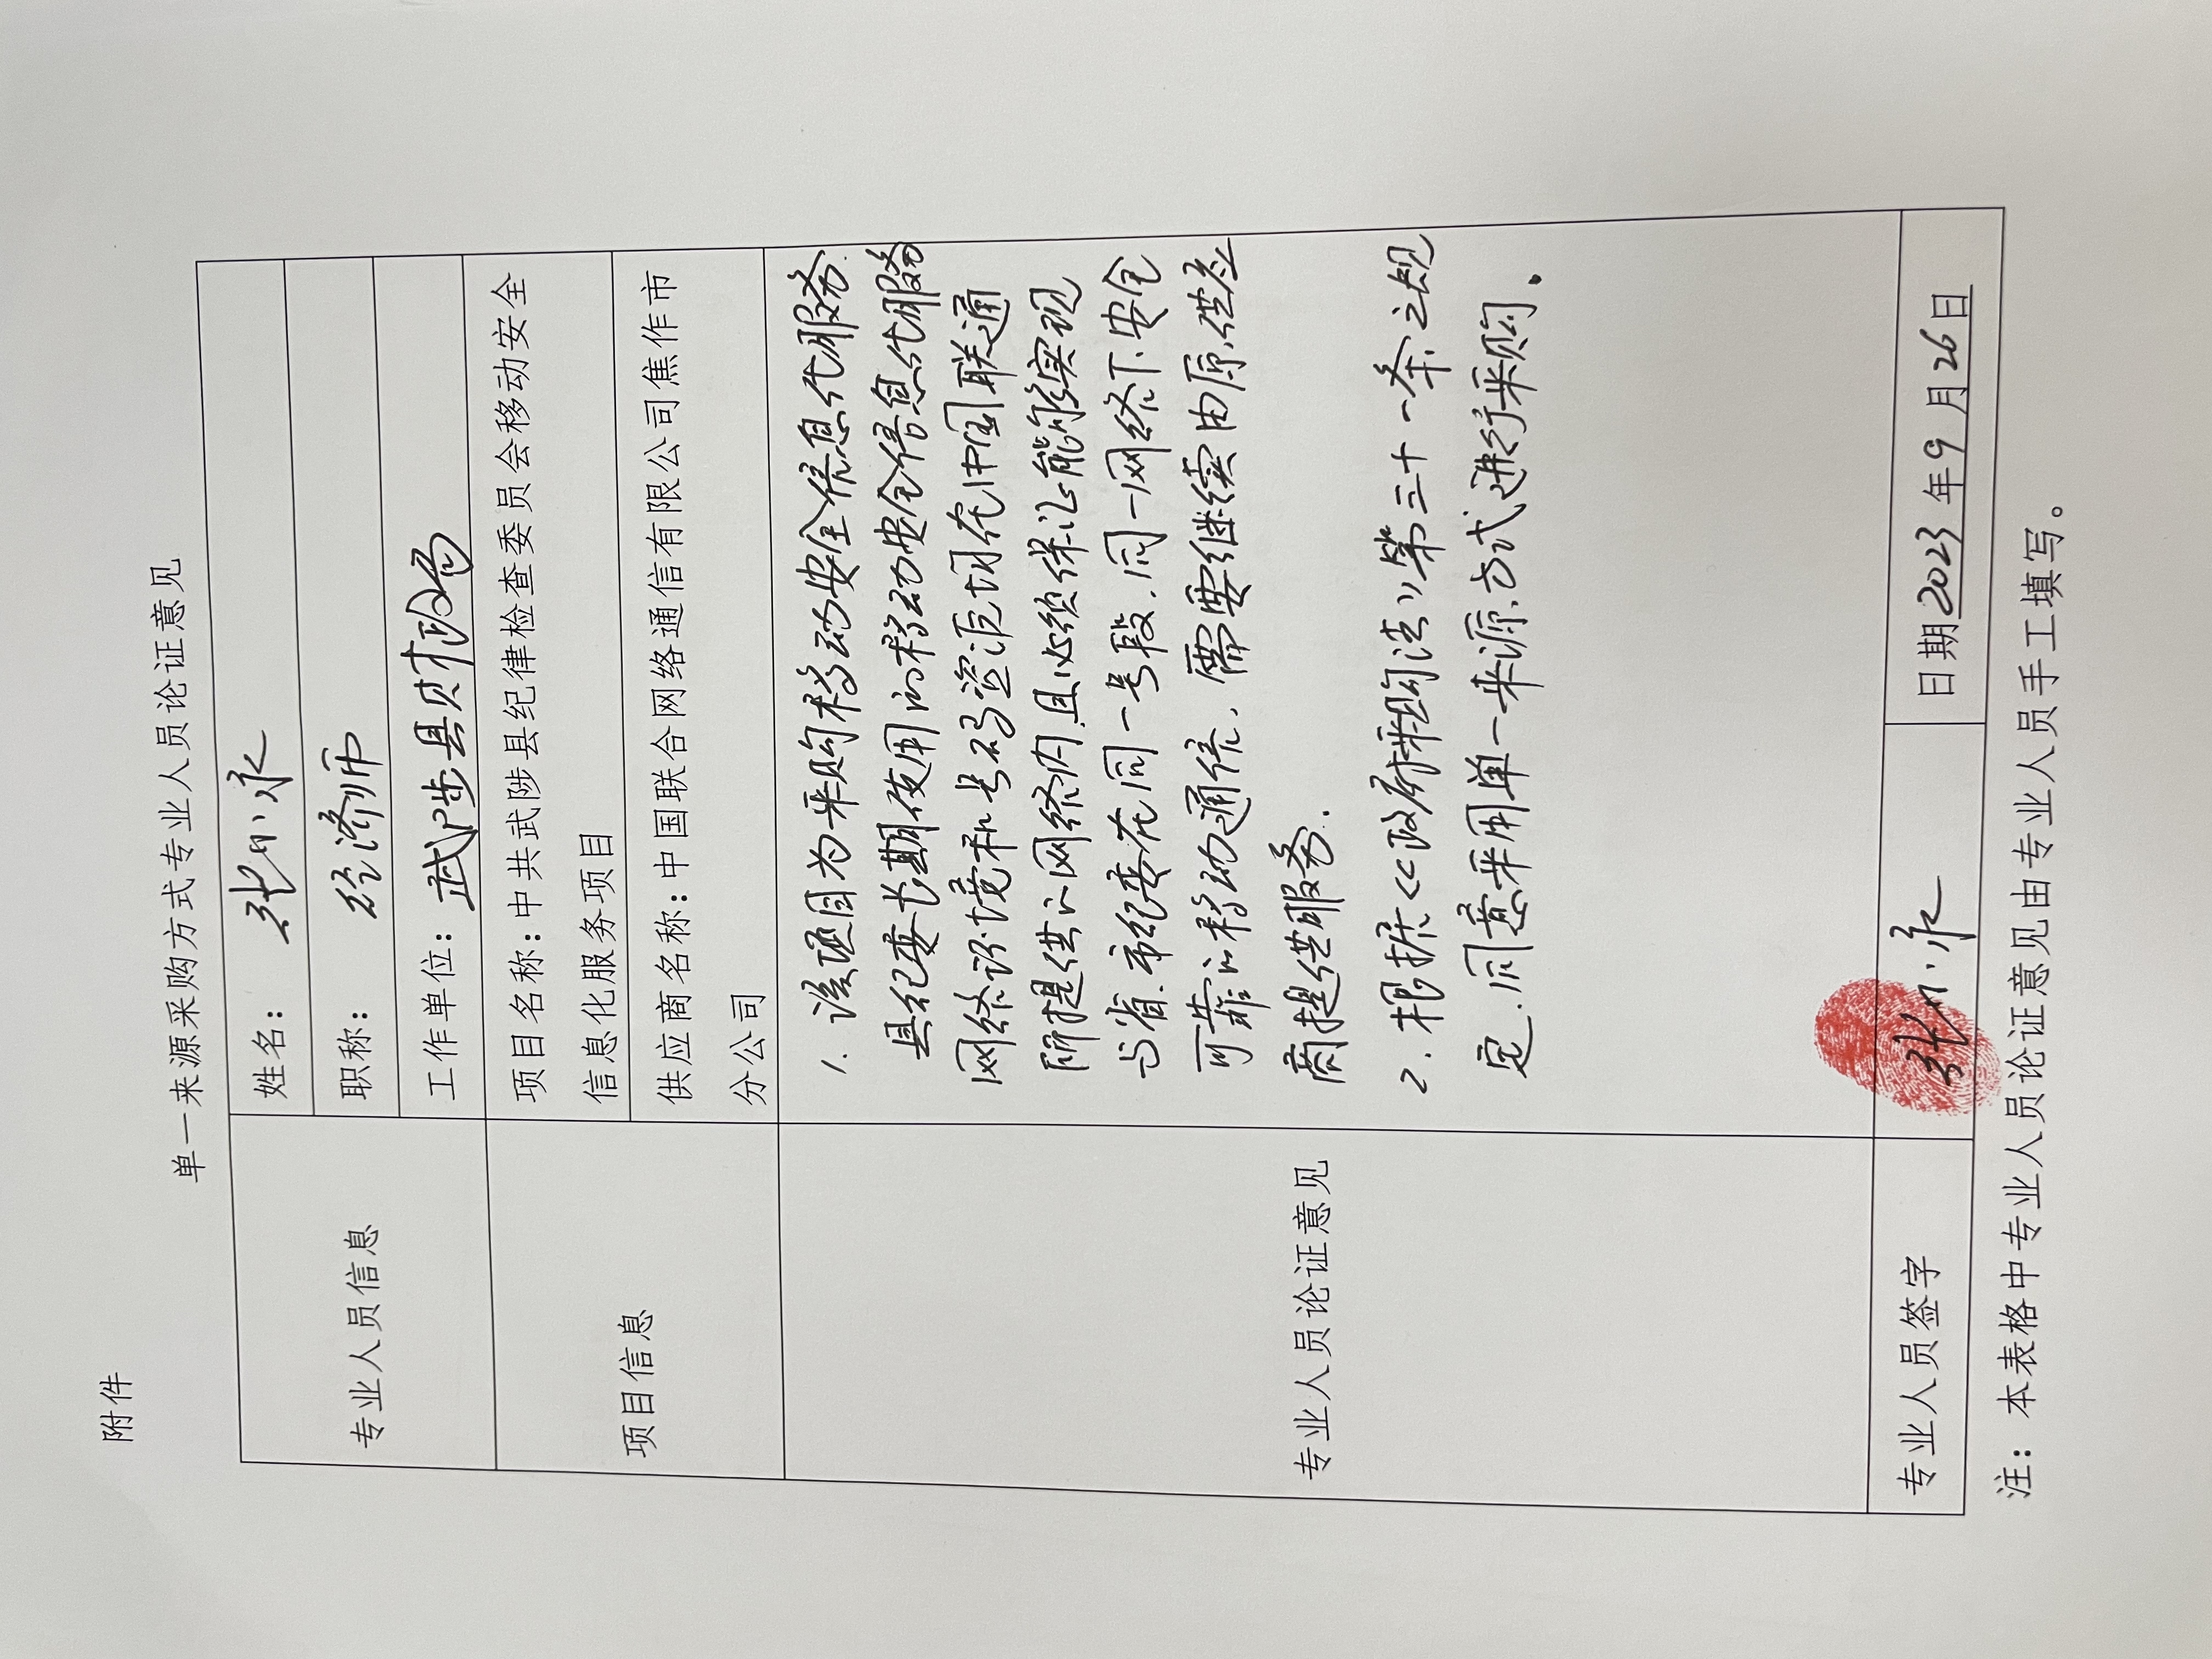 附件
单一来源采购方式专业人员论证意见
专业人员信息
姓名：张小永
职称：经济师
工作单位：武陟县财政局
项目信息
项目名称：中共武陟县纪律检查委员会移动安全
信息化服务项目
供应商名称：中国联合网络通信有限公司焦作市
分公司
专业人员论证意见
1. 该项目为采购移动安全信息化服务.
县纪委长期使用的移动安全信息化服务
网络环境和号码资源均在中国联通
所提供的网络内，且必须保证能够实现
与省、市纪委在同一号段，同一网络下安全
可靠的移动通信，需要继续由原供应
商提供服务.
2. 根据《政府采购法》第三十一条之规
定，同意采用单一来源方式进行采购。
专业人员签字
张小永
日期2023年9月26日
注：本表格中专业人员论证意见由专业人员手工填写。